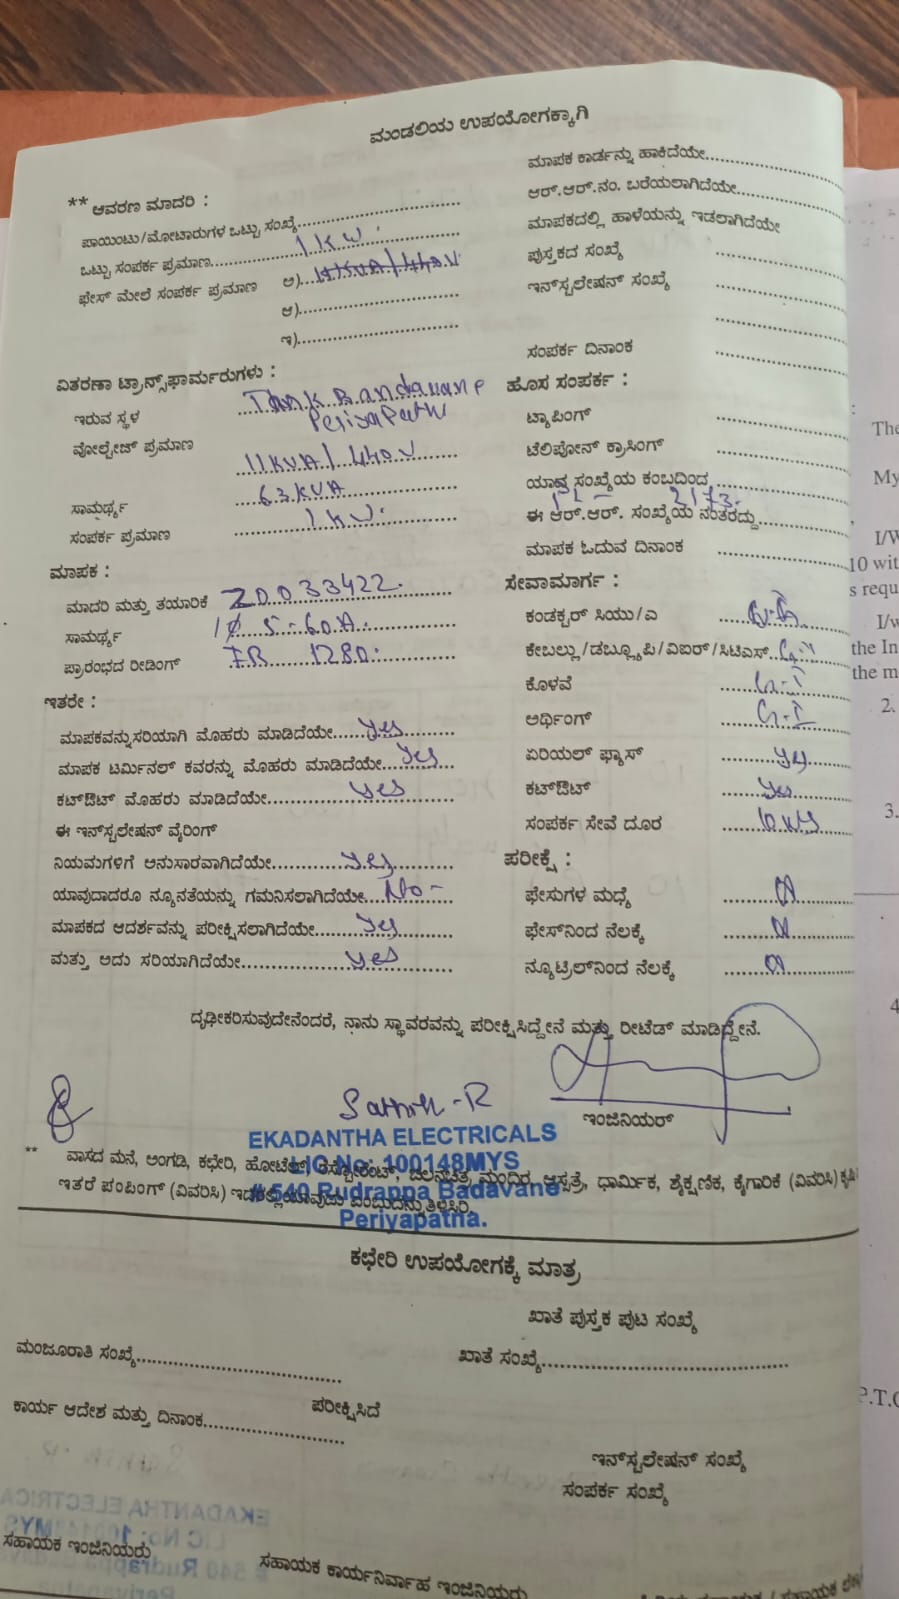 ಮಂಡಲಿಯ ಉಪಯೋಗಕ್ಕಾಗಿ
** ಆವರಣ ಮಾದರಿ :
ಪಾಯಿಂಟು/ಮೋಟಾರುಗಳ ಒಟ್ಟು ಸಂಖ್ಯೆ
ಒಟ್ಟು ಸಂಪರ್ಕ ಪ್ರಮಾಣ 1 KW
ಫೇಸ್ ಮೇಲೆ ಸಂಪರ್ಕ ಪ್ರಮಾಣ ಅ) 11KVA/440V
ಆ)
ಇ)
ವಿತರಣಾ ಟ್ರಾನ್ಸ್‌ಫಾರ್ಮರುಗಳು :
ಇರುವ ಸ್ಥಳ Tank Bandavane
PeriyaPatna
ವೋಲ್ಟೇಜ್ ಪ್ರಮಾಣ 11KVA/440V
ಸಾಮರ್ಥ್ಯ 63KVA
ಸಂಪರ್ಕ ಪ್ರಮಾಣ 1KV
ಮಾಪಕ :
ಮಾದರಿ ಮತ್ತು ತಯಾರಿಕೆ 20033422
ಸಾಮರ್ಥ್ಯ 1Ø 5-60A
ಪ್ರಾರಂಭದ ರೀಡಿಂಗ್ IR 1280
ಇತರೇ :
ಮಾಪಕವನ್ನುಸರಿಯಾಗಿ ಮೊಹರು ಮಾಡಿದೆಯೇ......yes
ಮಾಪಕ ಟರ್ಮಿನಲ್ ಕವರನ್ನು ಮೊಹರು ಮಾಡಿದೆಯೇ...yes
ಕಟ್‌ಔಟ್ ಮೊಹರು ಮಾಡಿದೆಯೇ......yes
ಈ ಇನ್‌ಸ್ಟಲೇಷನ್ ವೈರಿಂಗ್
ನಿಯಮಗಳಿಗೆ ಅನುಸಾರವಾಗಿದೆಯೇ......yes
ಯಾವುದಾದರೂ ನ್ಯೂನತೆಯನ್ನು ಗಮನಿಸಲಾಗಿದೆಯೇ...No -
ಮಾಪಕದ ಆದರ್ಶವನ್ನು ಪರೀಕ್ಷಿಸಲಾಗಿದೆಯೇ......yes
ಮತ್ತು ಅದು ಸರಿಯಾಗಿದೆಯೇ......yes
ಮಾಪಕ ಕಾರ್ಡನ್ನು ಹಾಕಿದೆಯೇ
ಆರ್.ಆರ್.ನಂ. ಬರೆಯಲಾಗಿದೆಯೇ
ಮಾಪಕದಲ್ಲಿ ಹಾಳೆಯನ್ನು ಇಡಲಾಗಿದೆಯೇ
ಪುಸ್ತಕದ ಸಂಖ್ಯೆ
ಇನ್‌ಸ್ಟಲೇಷನ್ ಸಂಖ್ಯೆ
ಸಂಪರ್ಕ ದಿನಾಂಕ
ಹೊಸ ಸಂಪರ್ಕ :
ಟ್ಯಾಪಿಂಗ್
ಟೆಲಿಫೋನ್ ಕ್ರಾಸಿಂಗ್
ಯಾವ ಸಂಖ್ಯೆಯ ಕಂಬದಿಂದ
2173
ಈ ಆರ್.ಆರ್. ಸಂಖ್ಯೆಯ ನಂತರದ್ದು
ಮಾಪಕ ಓದುವ ದಿನಾಂಕ
ಸೇವಾಮಾರ್ಗ :
ಕಂಡಕ್ಟರ್ ಸಿಯು/ಎ G-I
ಕೇಬಲ್ಲು/ಡಬ್ಲ್ಯೂಪಿ/ವಿಐಆರ್/ಸಿಟಿಎಸ್ G-I
ಕೊಳವೆ G-I
ಅರ್ಥಿಂಗ್ G-I
ಏರಿಯಲ್ ಫ್ಯೂಸ್ yes
ಕಟ್‌ಔಟ್ yes
ಸಂಪರ್ಕ ಸೇವೆ ದೂರ
ಪರೀಕ್ಷೆ :
ಫೇಸುಗಳ ಮಧ್ಯೆ
ಫೇಸ್‌ನಿಂದ ನೆಲಕ್ಕೆ
ನ್ಯೂಟ್ರಲ್‌ನಿಂದ ನೆಲಕ್ಕೆ
ದೃಢೀಕರಿಸುವುದೇನೆಂದರೆ, ನಾನು ಸ್ಥಾವರವನ್ನು ಪರೀಕ್ಷಿಸಿದ್ದೇನೆ ಮತ್ತು ರೀಟೆಡ್ ಮಾಡಿದ್ದೇನೆ.
ಇಂಜಿನಿಯರ್
EKADANTHA ELECTRICALS
LIC No: 100148MYS
# 540 Rudrappa Badavane
Periyapatna.
** ವಾಸದ ಮನೆ, ಅಂಗಡಿ, ಕಛೇರಿ, ಹೋಟೆಲ್, ರೆಸ್ಟೋರೆಂಟ್, ಚಲನಚಿತ್ರ ಮಂದಿರ, ಆಸ್ಪತ್ರೆ, ಧಾರ್ಮಿಕ, ಶೈಕ್ಷಣಿಕ, ಕೈಗಾರಿಕೆ (ವಿವರಿಸಿ) ಕೃಷಿ
ಇತರೆ ಪಂಪಿಂಗ್ (ವಿವರಿಸಿ) ಇದರಲ್ಲಿ ಯಾವುದು ಎಂಬುದನ್ನು ತಿಳಿಸಿರಿ.
ಕಛೇರಿ ಉಪಯೋಗಕ್ಕೆ ಮಾತ್ರ
ಖಾತೆ ಪುಸ್ತಕ ಪುಟ ಸಂಖ್ಯೆ
ಮಂಜೂರಾತಿ ಸಂಖ್ಯೆ
ಖಾತೆ ಸಂಖ್ಯೆ
ಕಾರ್ಯ ಆದೇಶ ಮತ್ತು ದಿನಾಂಕ
ಪರೀಕ್ಷಿಸಿದೆ
ಇನ್‌ಸ್ಟಲೇಷನ್ ಸಂಖ್ಯೆ
ಸಂಪರ್ಕ ಸಂಖ್ಯೆ
ಸಹಾಯಕ ಇಂಜಿನಿಯರು
ಸಹಾಯಕ ಕಾರ್ಯನಿರ್ವಾಹ ಇಂಜಿನಿಯರು
The
My
I/W
10 wit
s requ
I/w
the In
the m
2.
3.
4
P.T.O